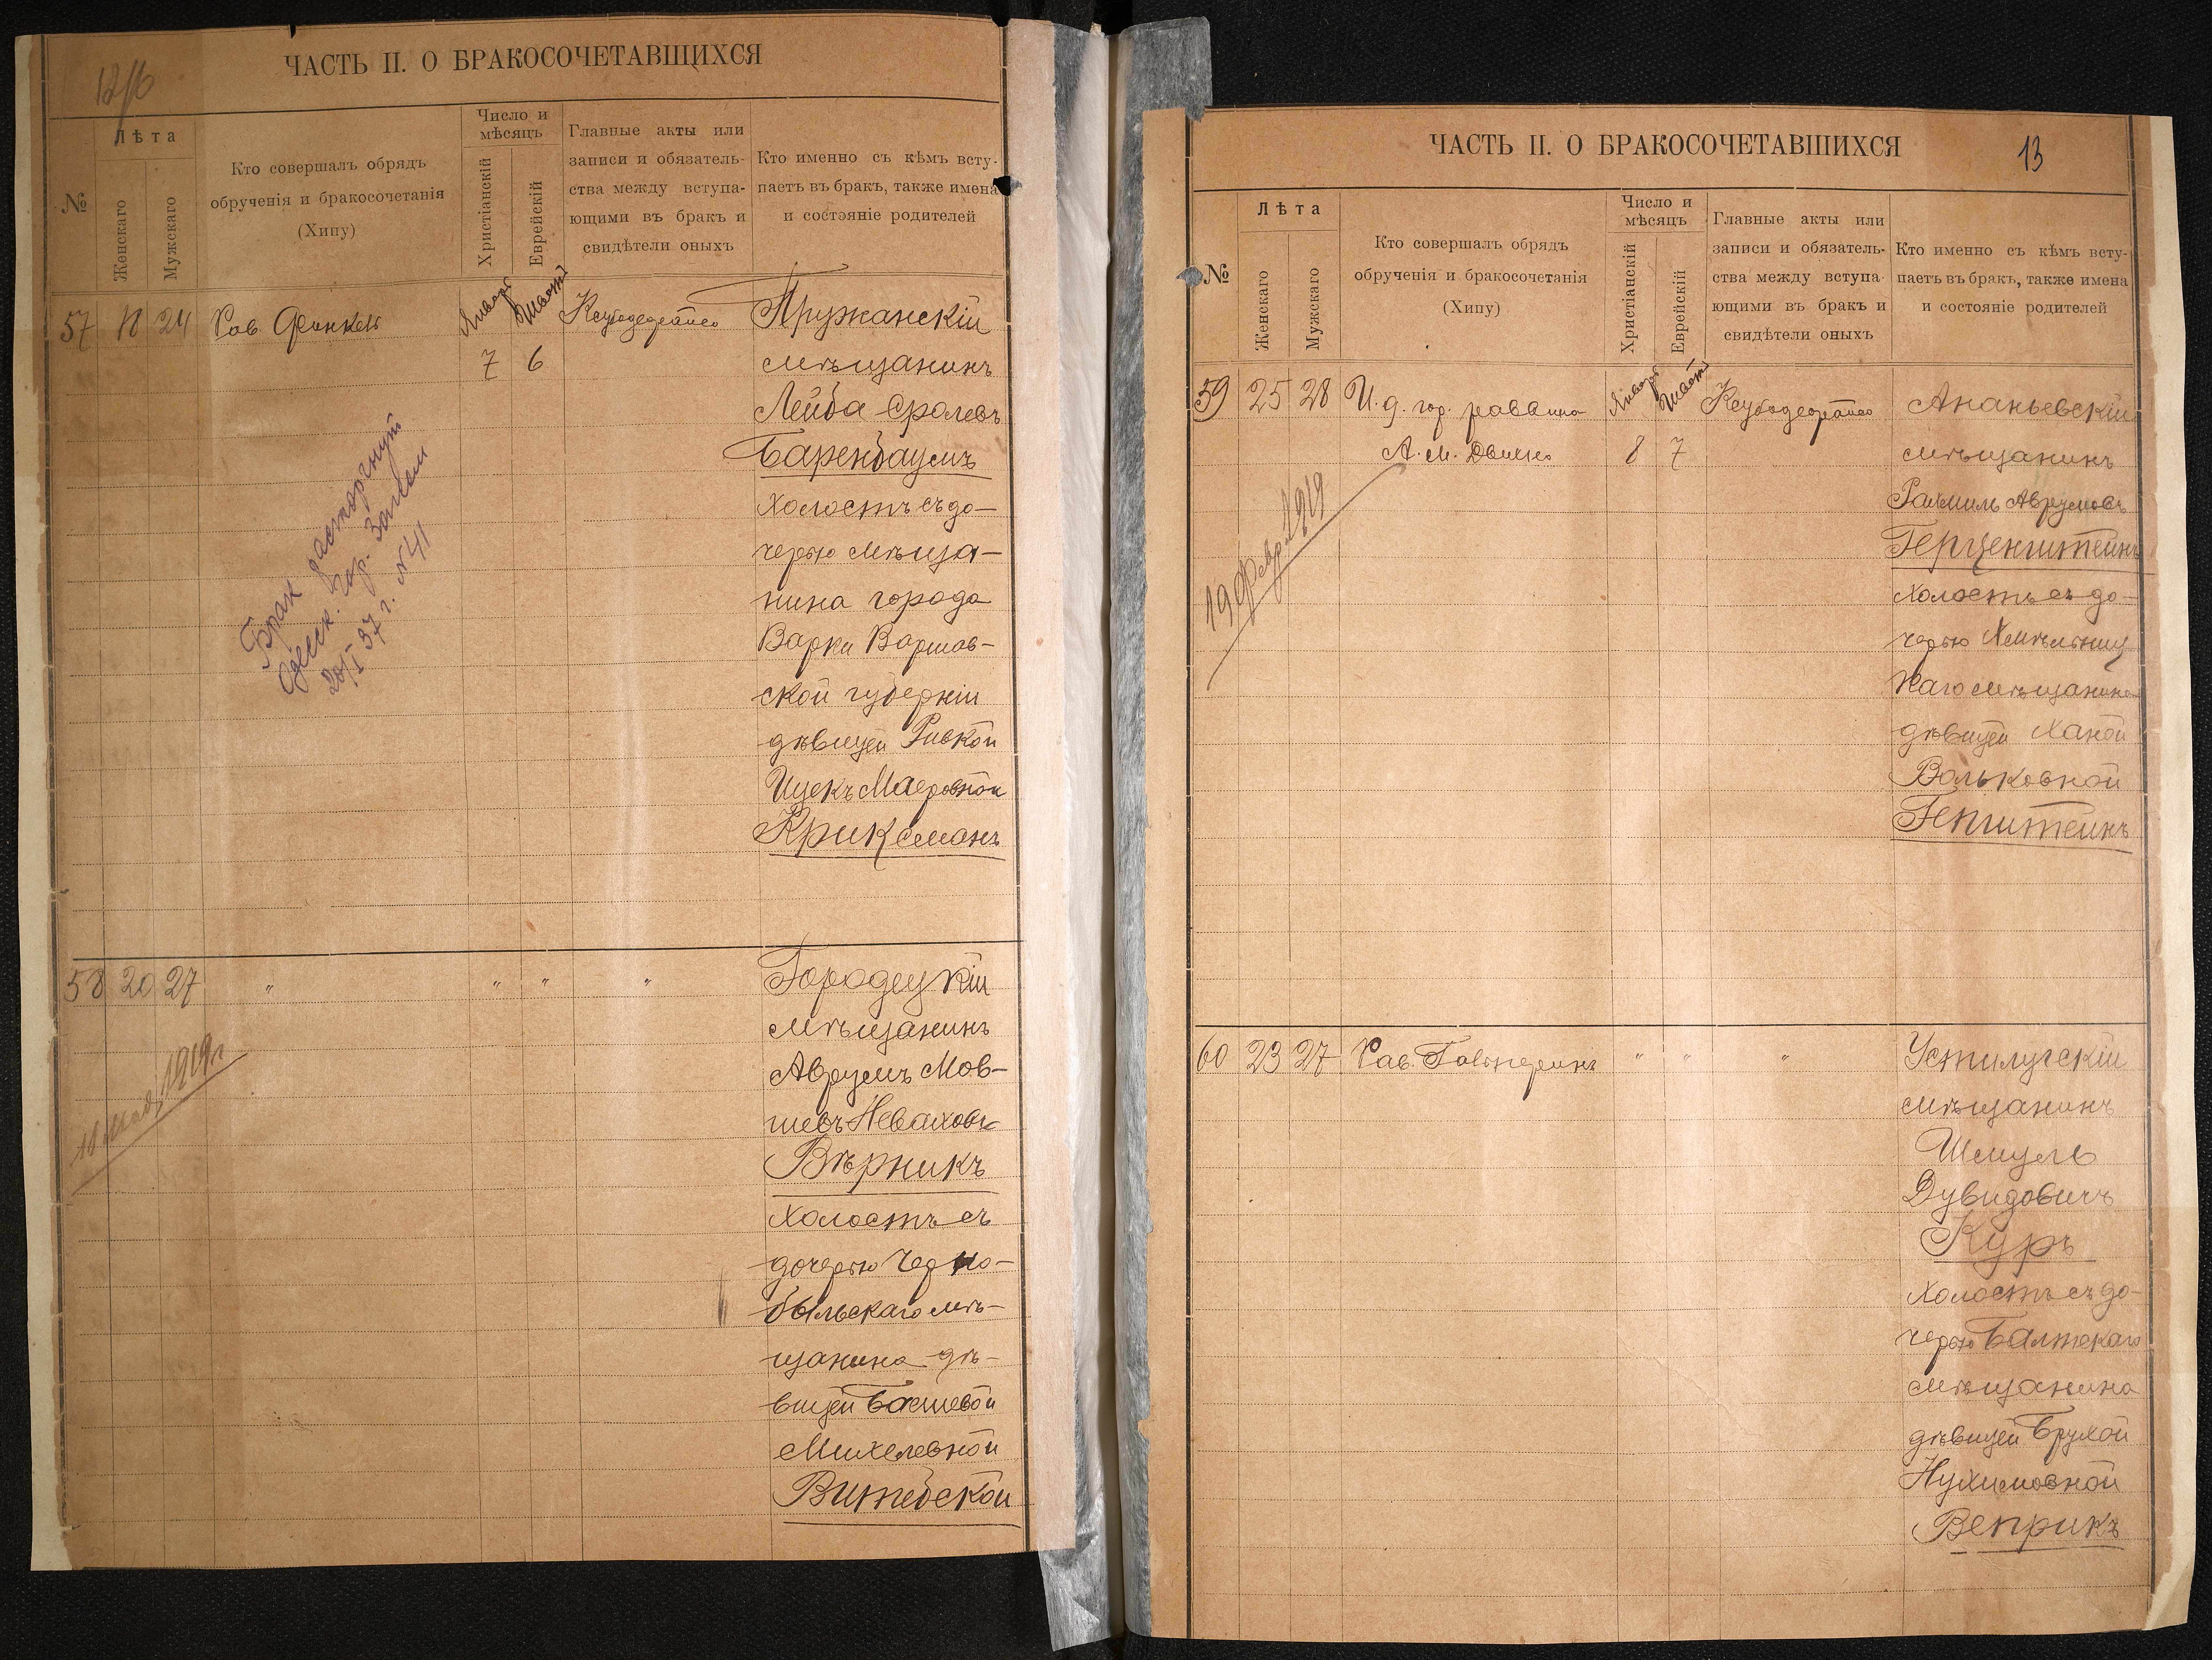 12/б
ЧАСТЬ II. О БРАКОСОЧЕТАВШИХСЯ
№
Лѣта
Женскаго
Мужскаго
Кто совершалъ обрядъ
обрученія и бракосочетанія
(Хипу)
Число и
мѣсяцъ
Христіанскій
Еврейскій
Главные акты или
записи и обязатель-
ства между вступа-
ющими въ бракъ и
свидѣтели оныхъ
Кто именно съ кѣмъ всту-
паетъ въ бракъ, также имена
и состояніе родителей
57 18 24 Рав Финкель Январ Шват
7 6
Пружанскій
мѣщанинъ
Лейба Сролевъ
Баренбаумъ
холостъ съ до-
черью мѣща-
нина города
Варки Варшав-
ской губерніи
дѣвицей Ривкой
Ицекъ Маеровной
Криксманъ
Брак расторгнут
Одесск. Гор. Загсом
20/I 37 г. №41
58 20 27 " " " "
Городецкій
мѣщанинъ
Аврумъ Мов-
шевъ Неваховъ
Вѣрникъ
холостъ съ
дочерью Черно-
быльскаго мѣ-
щанина дѣ-
вицей Басшевой
Михелевной
Витебской
1919 г
ЧАСТЬ II. О БРАКОСОЧЕТАВШИХСЯ
13
№
Лѣта
Женскаго
Мужскаго
Кто совершалъ обрядъ
обрученія и бракосочетанія
(Хипу)
Число и
мѣсяцъ
Христіанскій
Еврейскій
Главные акты или
записи и обязатель-
ства между вступа-
ющими въ бракъ и
свидѣтели оныхъ
Кто именно съ кѣмъ всту-
паетъ въ бракъ, также имена
и состояніе родителей
59 25 28 И. д. гор. раввина Январ Шват
А. М. 8 7
Ананьевскій
мѣщанинъ
Рахмиль Аврумовъ
Герценштейнъ
холостъ съ до-
черью Хмѣльниц
каго мѣщанина
дѣвицей Ханой
Вольковной
Гепштейнъ
19 Февр 1919
60 23 27 Рав. Гальперинъ " " "
Устилугскій
мѣщанинъ
Шмуль
Дувидовичъ
Куръ
холостъ съ до-
черью Балтскаго
мѣщанина
дѣвицей Брухой
Нухимовной
Веприкъ